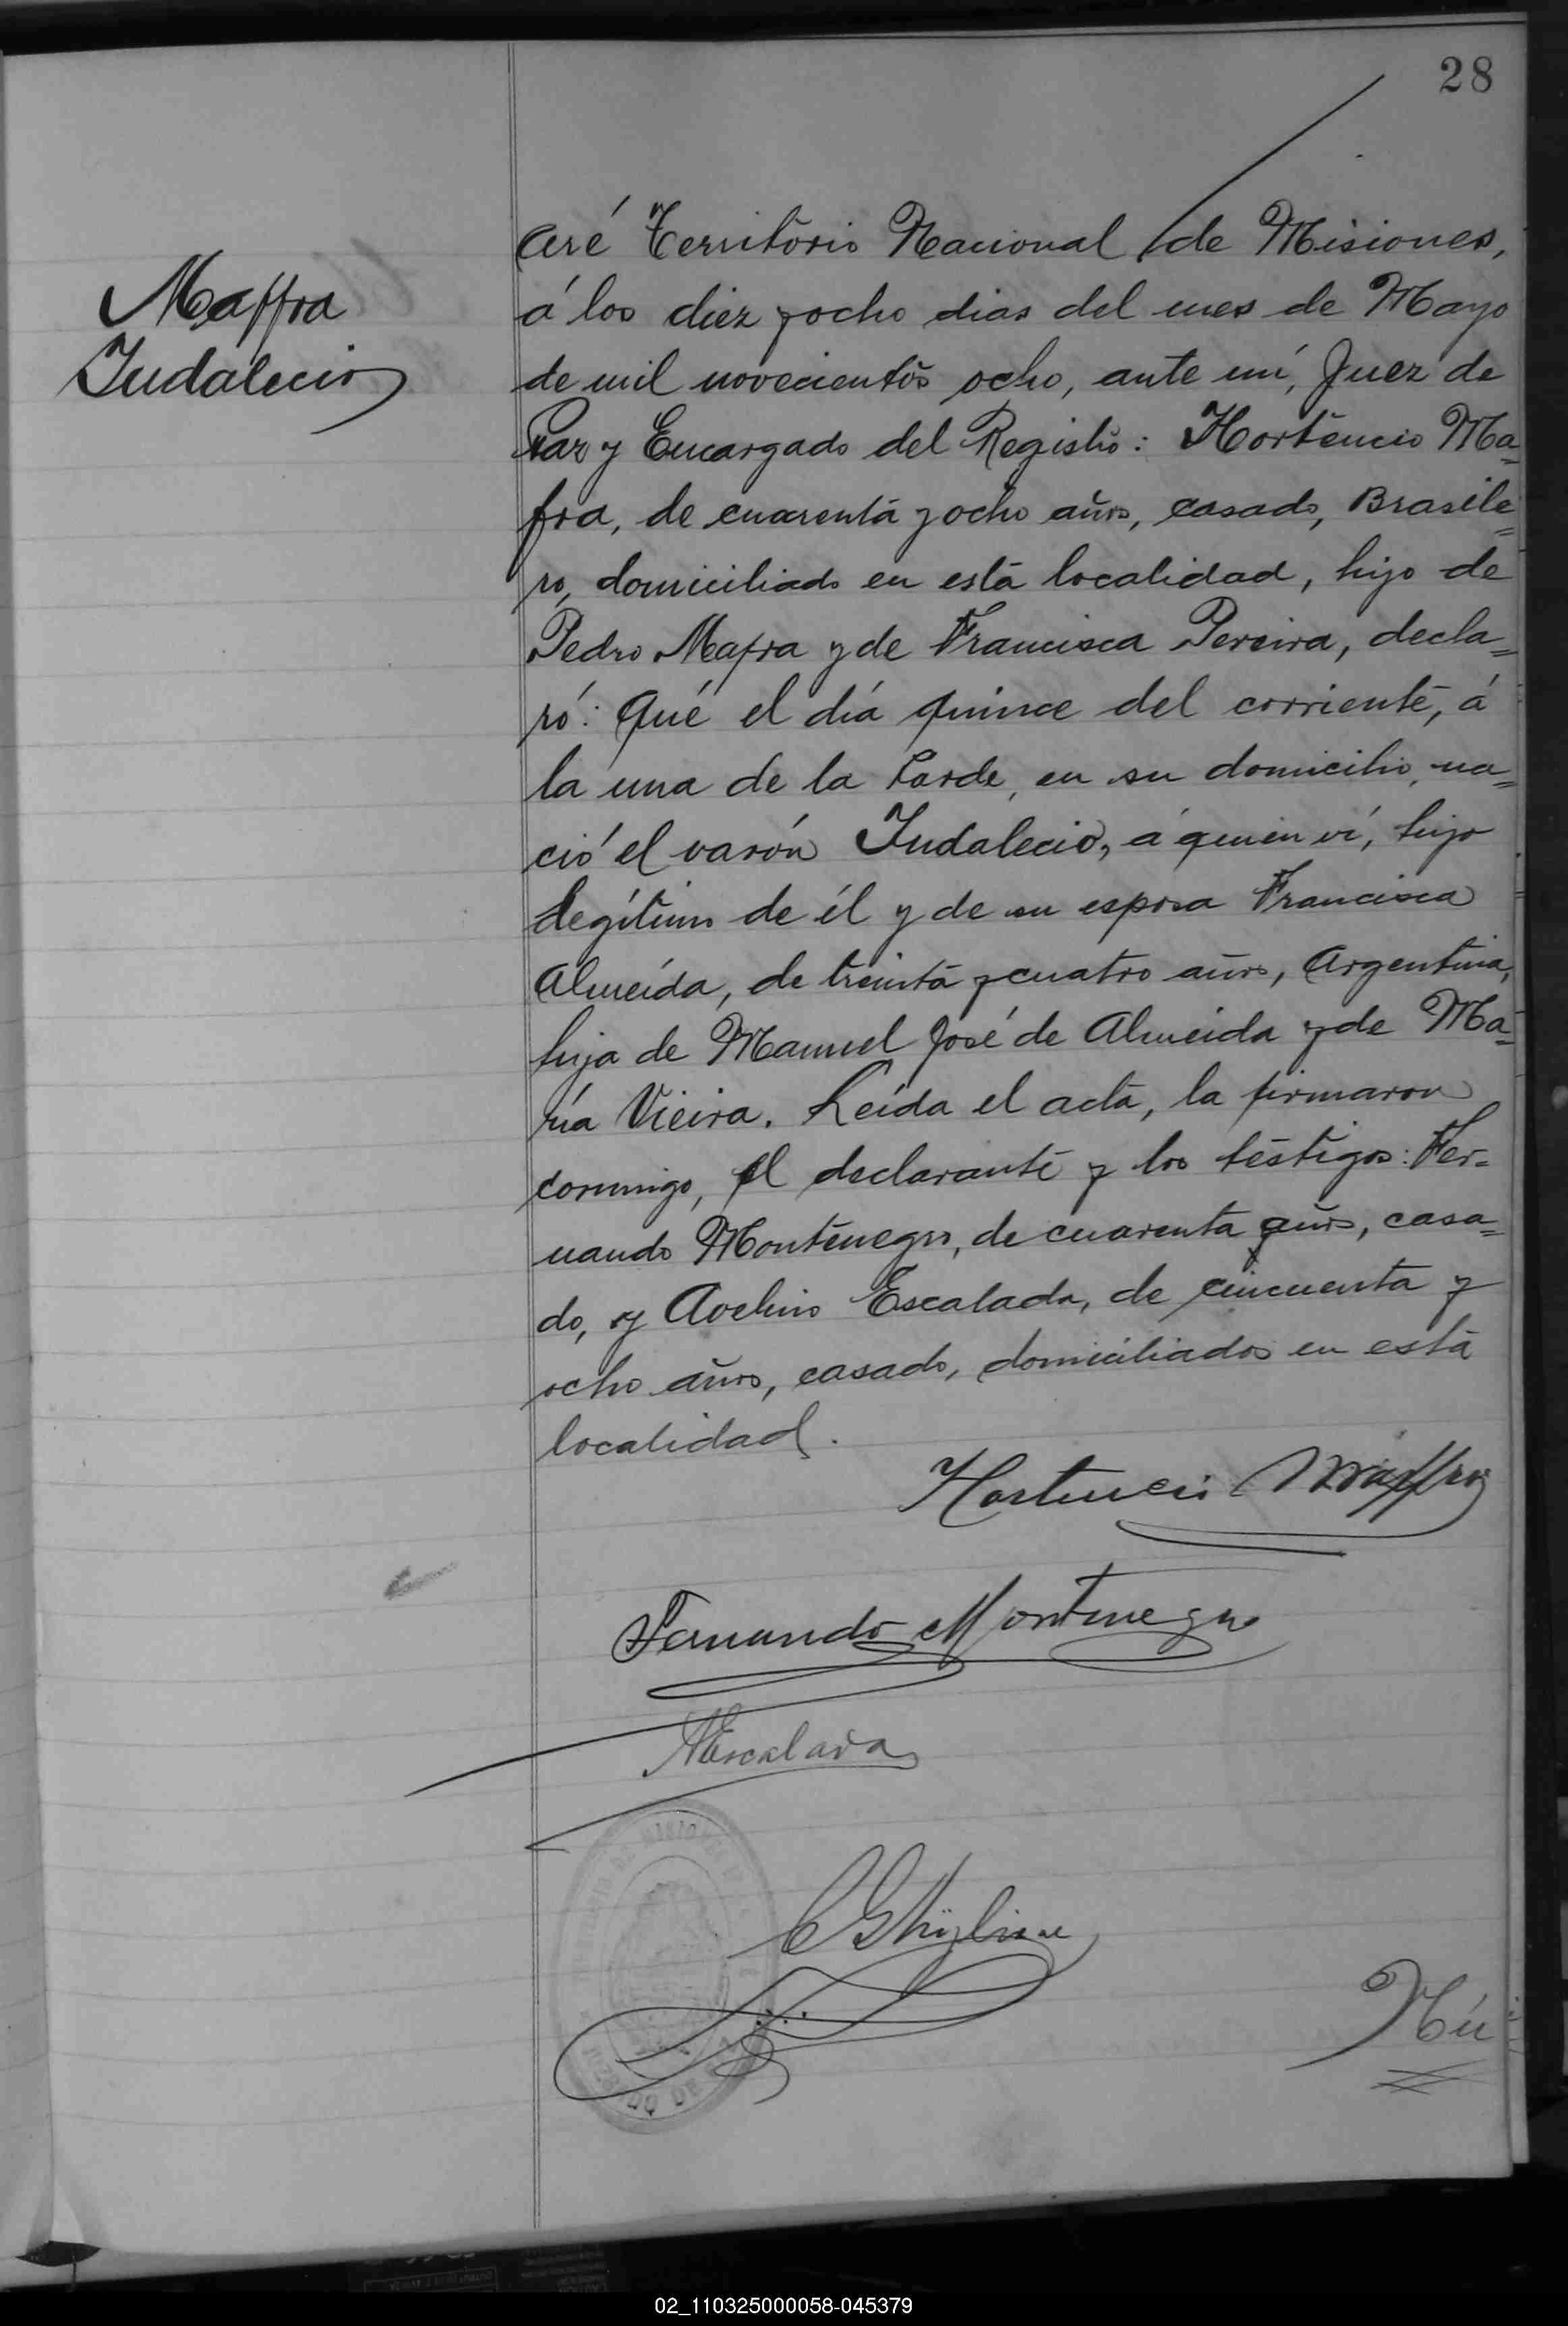 28
Maffra
Indalecio
aré Territorio Nacional de Misiones,
á los diez y ocho dias del mes de Mayo
de mil novecientos ocho, ante mí, Juez de
Paz y Encargado del Registro: Hortencio Ma=
fra, de cuarenta y ocho años, casado, Brasile=
ro, domiciliado en esta localidad, hijo de
Pedro Mafra y de Francisca Pereira, decla=
ró: Qué el día quince del corriente, á
la una de la tarde, en su domicilio, na=
ció el varón Indalecio, á quien ví, hijo
legítimo de él y de su esposa Francisca
Almeída, de treinta y cuatro años, Argentina,
hija de Manuel José de Almeida y de Ma=
ría Vieira. Leída el acta, la firmaron
conmigo, el declarante y los testigos: Fer=
nando Montenegro, de cuarenta años, casa=
do, y Avelino Escalada, de cincuenta y
ocho años, casado, domiciliados en esta
localidad.
Hortencio Maffra
Fernando Montenegro
AEscalada
Nú
02_110325000058-045379